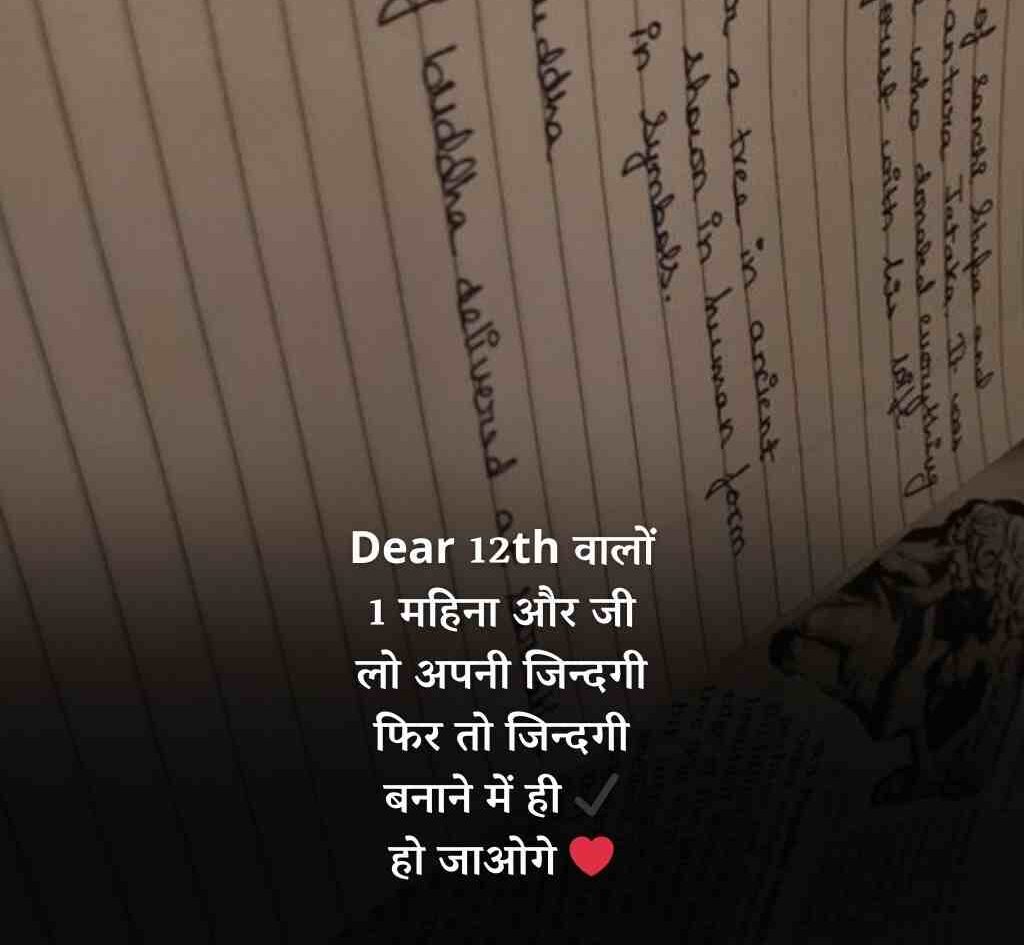 of Sanchi Stupa and
antara Jataka. It was
who donated everything
with his wife
a tree in ancient
shown in human form
in Symbols.
uddha
buddha delivered a
Dear 12th वालों
1 महिना और जी
लो अपनी जिन्दगी
फिर तो जिन्दगी
बनाने में ही ✓
हो जाओगे ❤